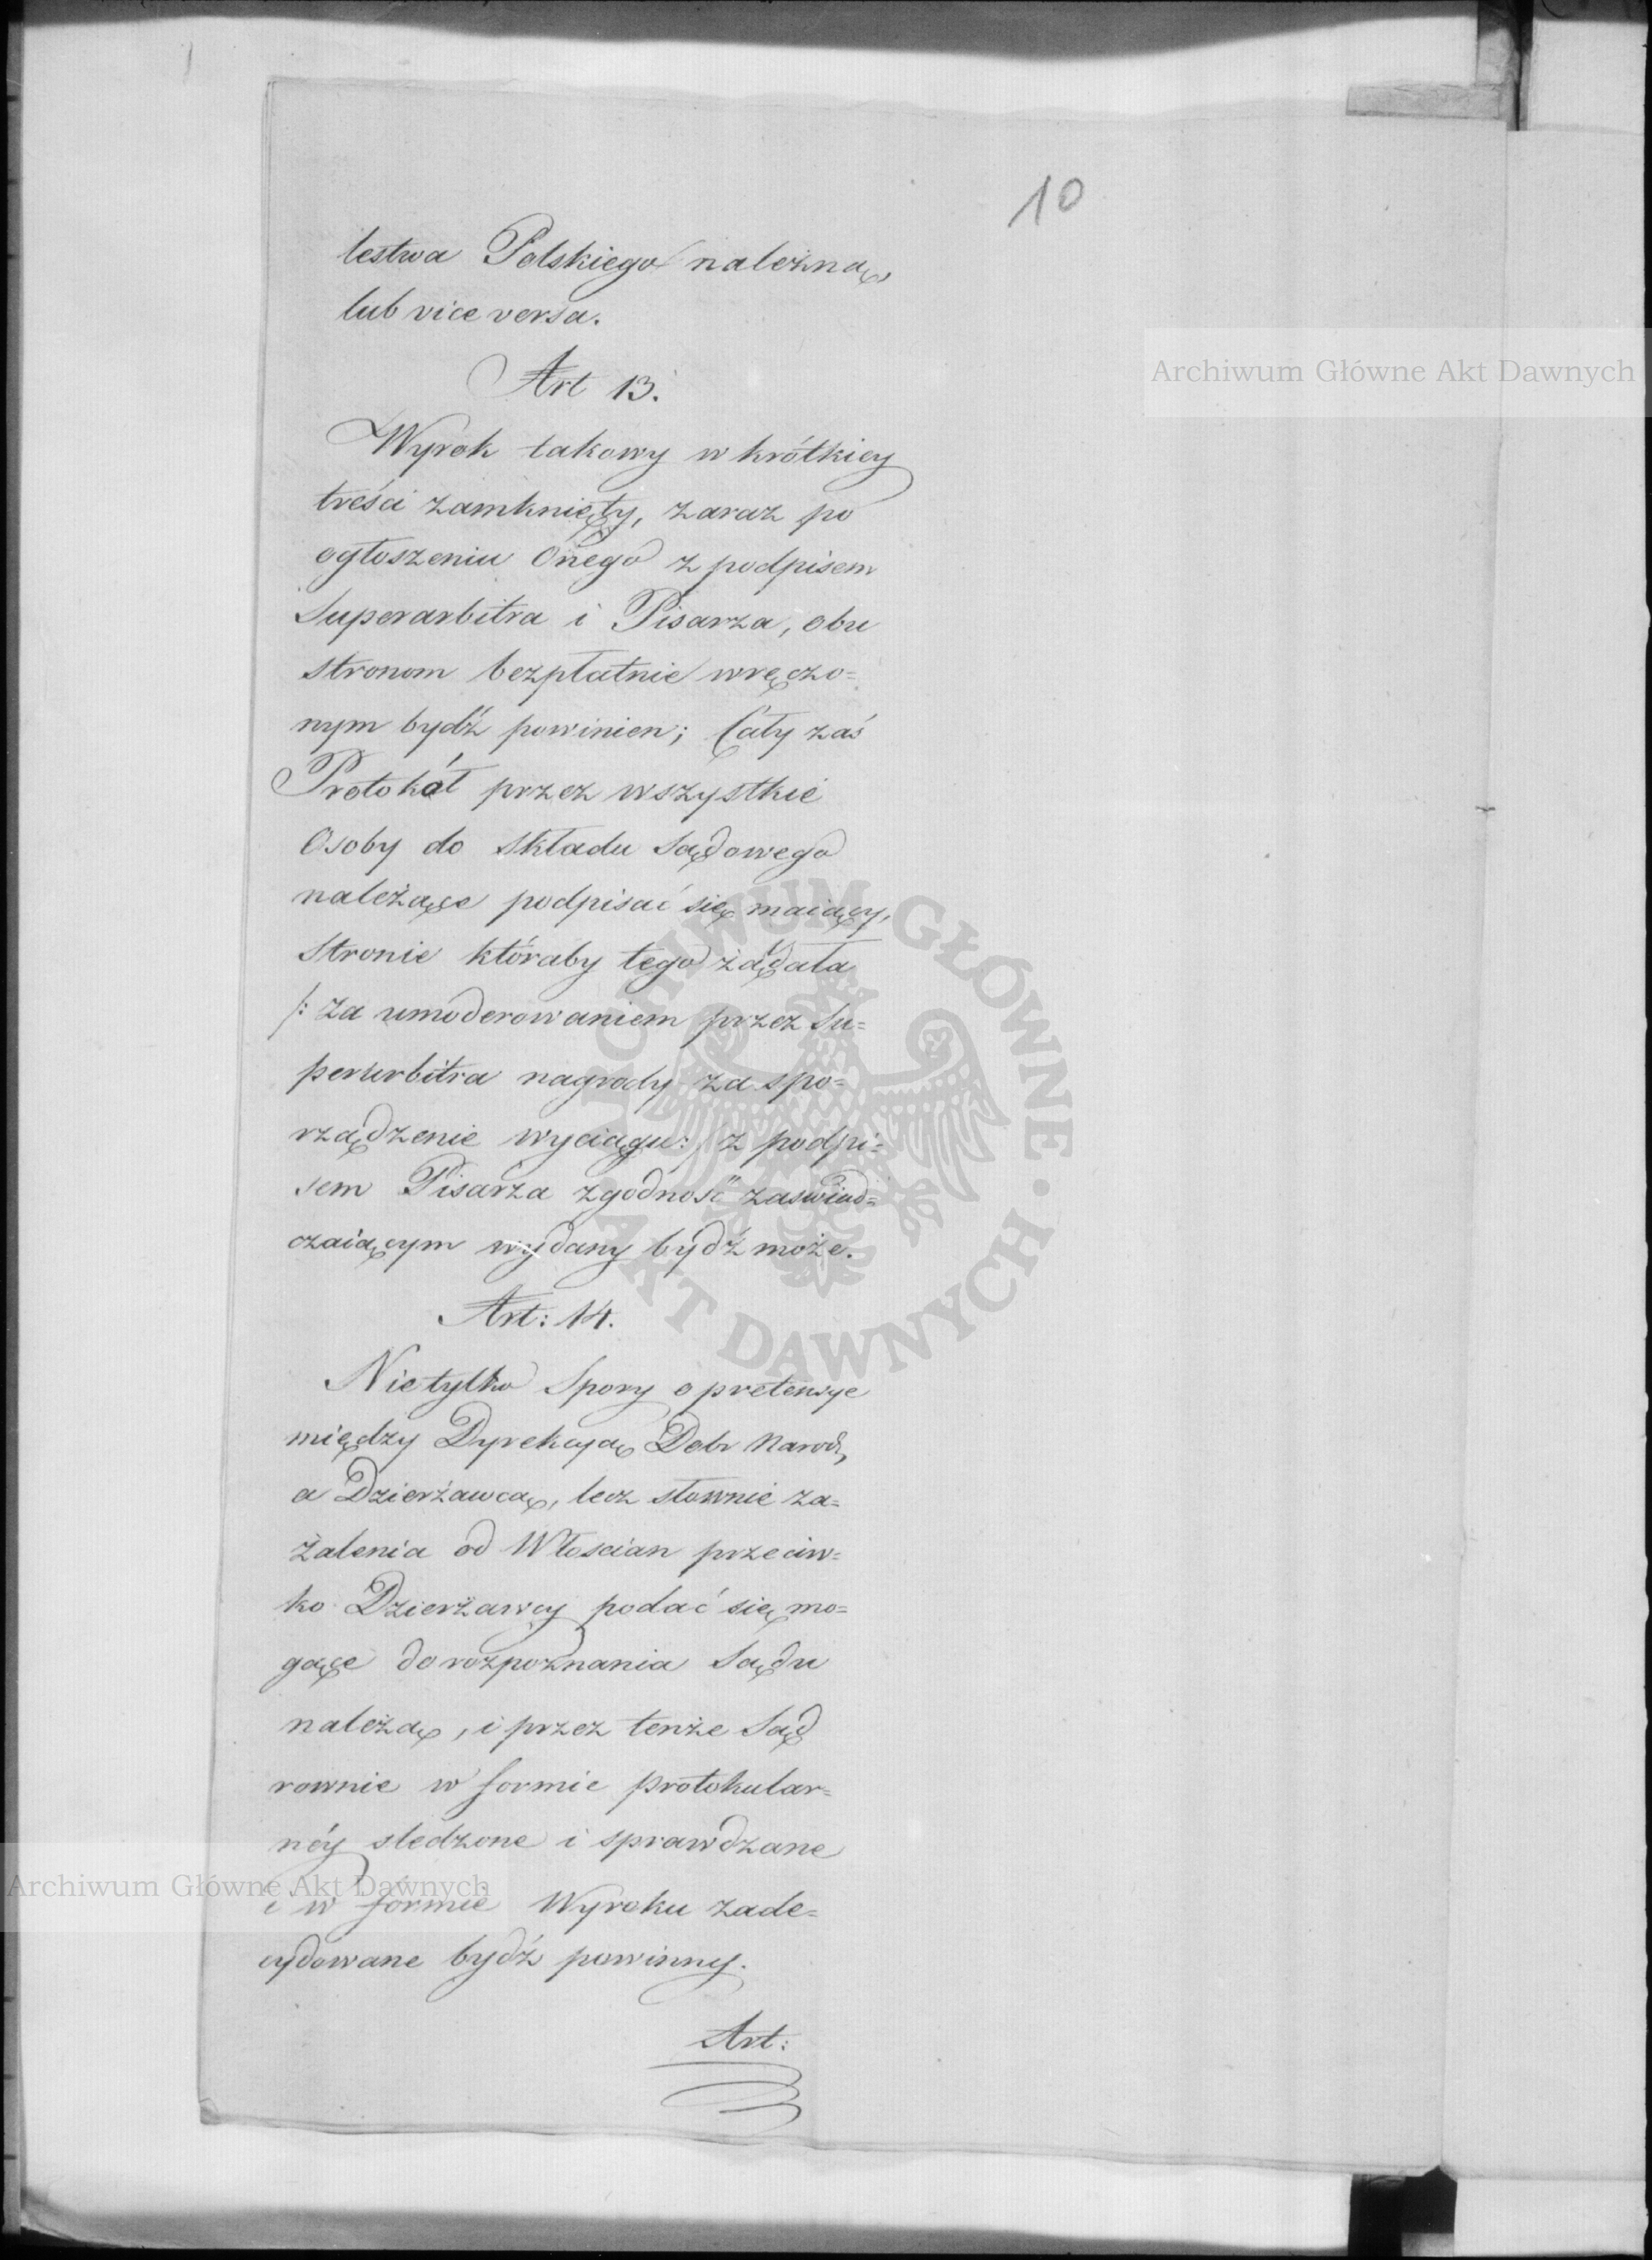 10
lestwa Polskiego należną,
lub vice versa.
Art 13.
Wyrok takowy w krótkiey
treści zamknięty, zaraz po
ogłoszeniu Onego z podpisem
Superarbitra i Pisarza, obu
stronom bezpłatnie wręczo=
nym bydź powinien; Cały zaś
Protokół przez wszystkie
Osoby do składu Sądowego
należące podpisać się maiący,
Stronie któraby tego żądała
/: za umoderowaniem przez Su=
perarbitra nagrody za spo=
rządzenie wyciągu :/ z podpi=
sem Pisarza zgodność zaswiad=
czaiącym wydany bydź może.
Art: 14.
Nietylko Spory o pretensye
między Dyrekcyą Dobr Narod,
a Dzierżawcą, lecz słownie za=
żalenia od Włoscian przeciw=
ko Dzierżawcy podać się mo=
gące do rozpoznania Sądu
należą, i przez tenże Sąd
rownie w formie protokular=
néy sledzone i sprawdzane
i w formie Wyroku zade=
cydowane bydź powinny.
Art:
Archiwum Główne Akt Dawnych
ARCHIWUM GŁÓWNE · AKT DAWNYCH ·
Archiwum Główne Akt Dawnych